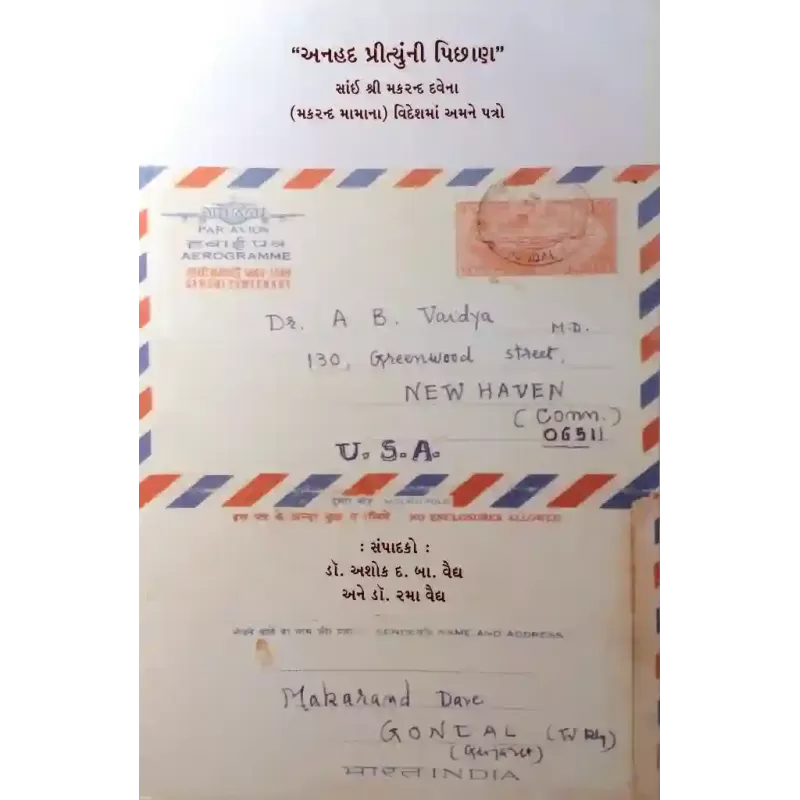 “અનહદ પ્રીત્યુંની પિછાણ”
સાંઈ શ્રી મકરન્દ દવેના
(મકરન્દ મામાના) વિદેશમાં અમને પત્રો
PAR AVION
हवाई पत्र
AEROGRAMME
GANDHI CENTENARY
Dr. A B. Vaidya M.D.
130, Greenwood street,
NEW HAVEN
(Conn.)
06511
U.S.A.
NO ENCLOSURES ALLOWED
: સંપાદકો :
ડૉ. અશોક દ. બા. વૈદ્ય
અને ડૉ. રમા વૈદ્ય
SENDER'S NAME AND ADDRESS
Makarand Dave
GONDAL (W Rly)
(Gujarat)
भारत INDIA